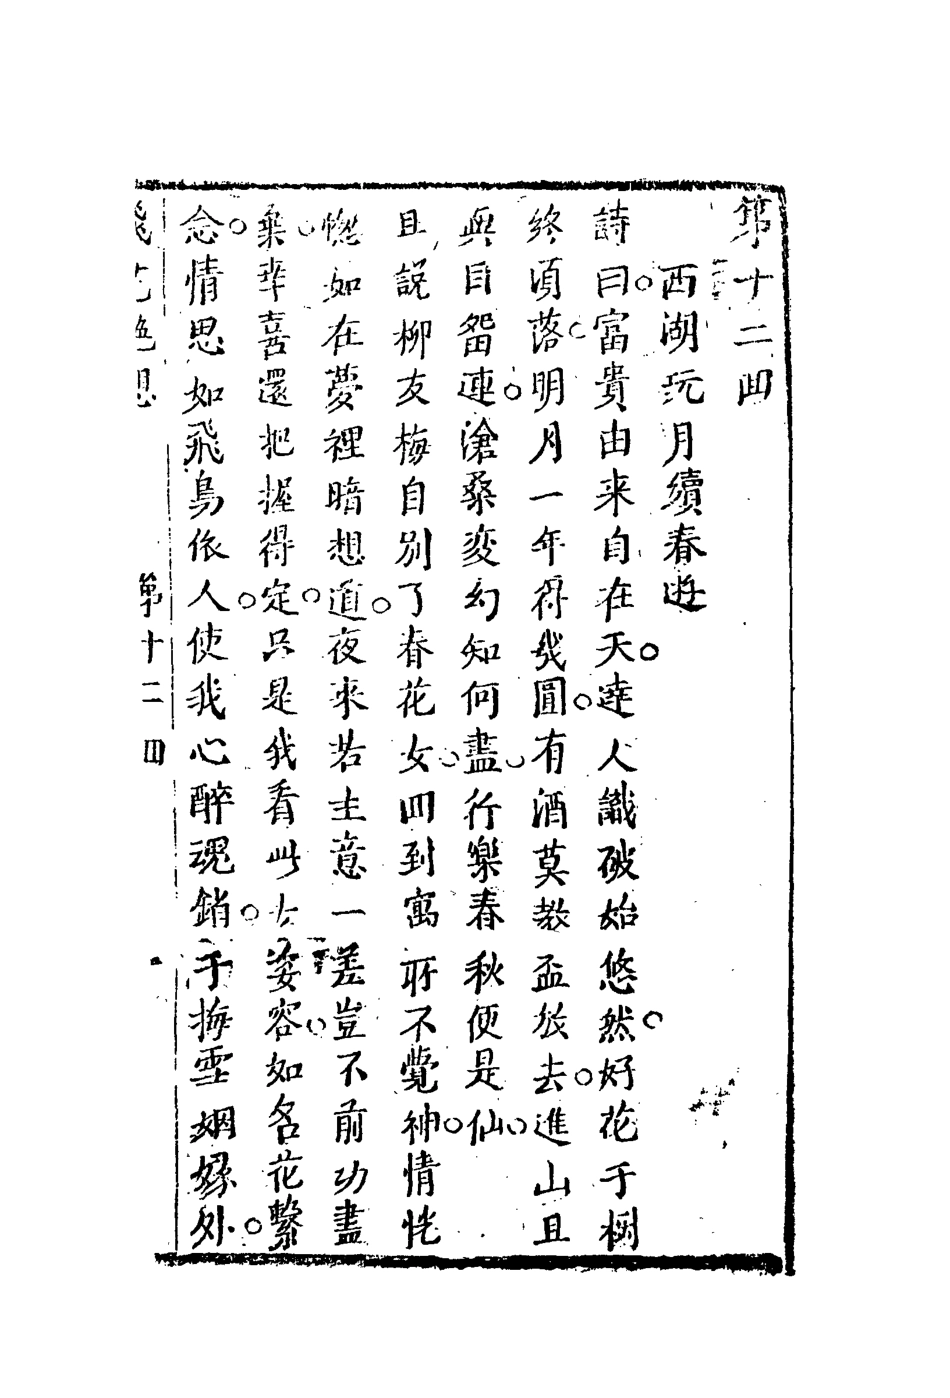 第十二回
西湖玩月續春遊
詩曰富貴由来自在天達人識破始悠然好花于樹
終須落明月一年得幾圓有酒莫教盃放去進山且
與目畱連滄桑变幻知何盡行樂春秋便是仙
且說柳友梅自别了春花女回到寓所不覺神情恍
惚如在夢裡暗想道夜来若主意一差豈不前功盡
棄幸喜還把握得定只是我看此女姿容如名花繫
念情思如飛鳥依人使我心醉魂銷于梅雪姻緣外
飛花艷想 第十二回